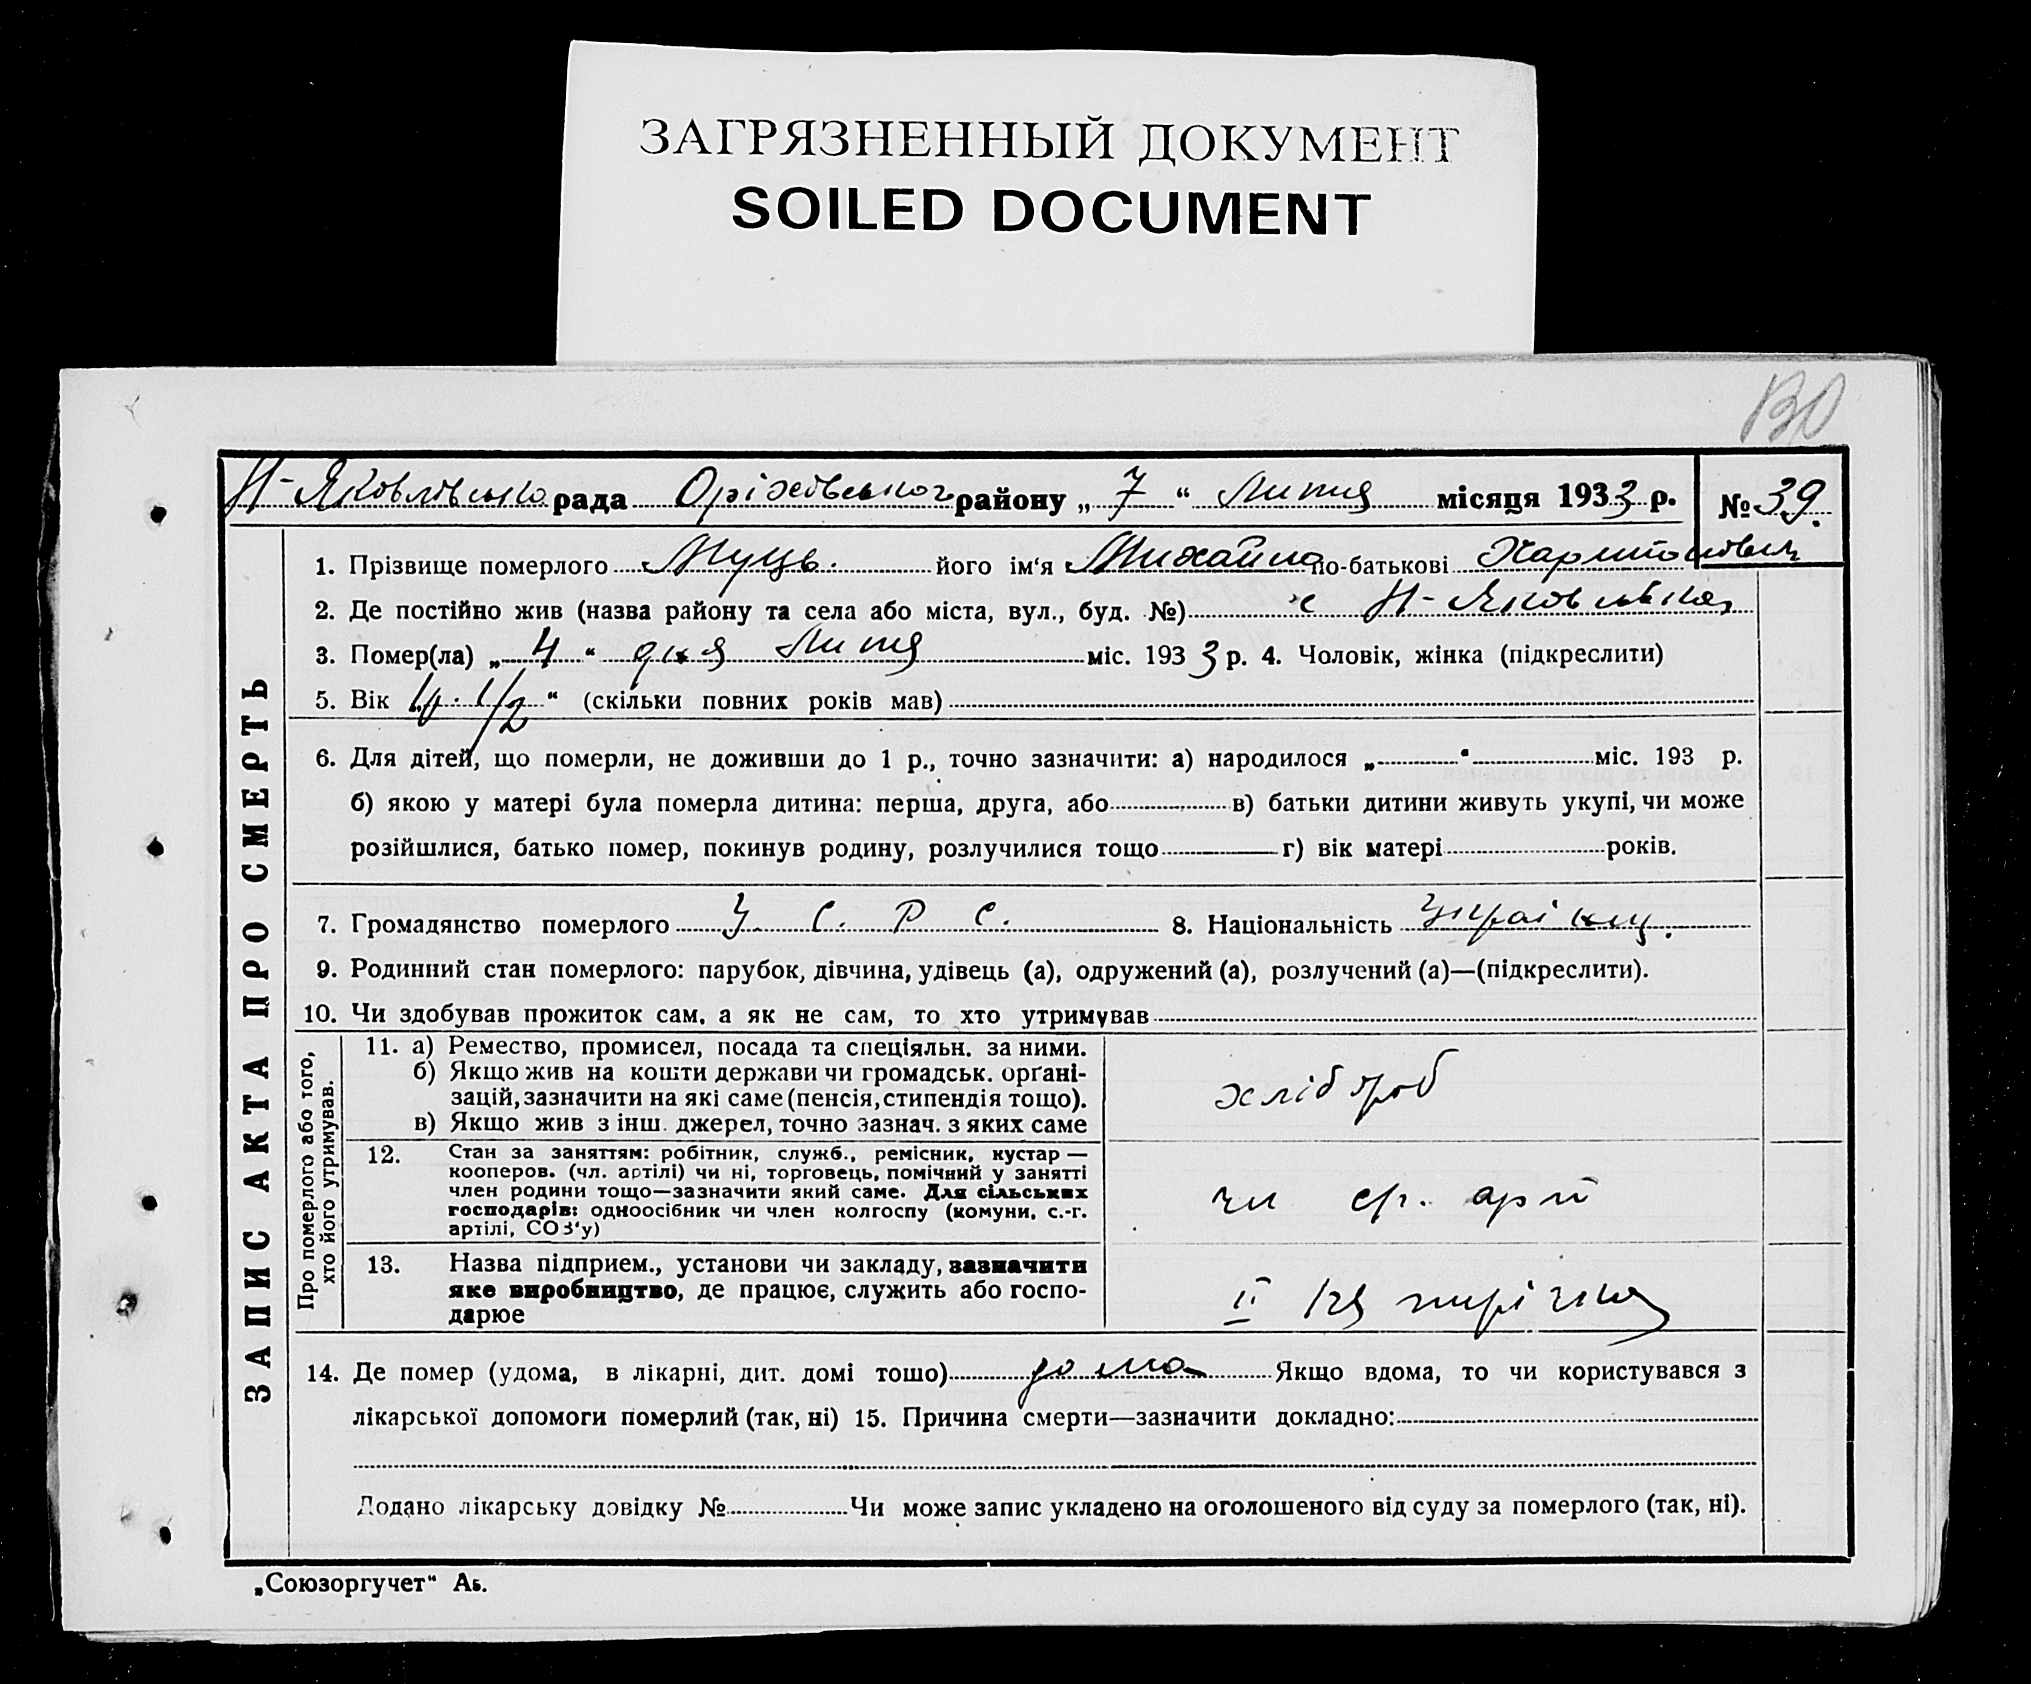 ЗАГРЯЗНЕННЫЙ ДОКУМЕНТ
SOILED DOCUMENT
Н-Яковлівська рада Оріхівського району „ 7 “ Липня місяця 1933 р. № 39.
ЗАПИС АКТА ПРО СМЕРТЬ
1. Прізвище померлого Муць його ім‘я Михайло по-батькові Харитонович
2. Де постійно жив (назва району та села або міста, вул., буд. №) с Н-Яковлівка
3. Помер(ла) „ 4 “ дня Липня міс. 1933 р. 4. Чоловік, жінка (підкреслити)
5. Вік 1/2 “ (скільки повних років мав)
6. Для дітей, що померли, не доживши до 1 р., точно зазначити: а) народилося „ “ міс. 193 р.
б) якою у матері була померла дитина: перша, друга, або в) батьки дитини живуть укупі, чи може
розійшлися, батько помер, покинув родину, розлучилися тощо г) вік матері років.
7. Громадянство померлого У. С. Р. С. 8. Національність Україн.
9. Родинний стан померлого: парубок, дівчина, удівець (а), одружений (а), розлучений (а)—(підкреслити).
10. Чи здобував прожиток сам, а як не сам, то хто утримував
Про померлого або того,
хто його утримував.
11. а) Ремество, промисел, посада та спеціяльн. за ними.
б) Якщо жив на кошти держави чи громадськ. орґані-
зацій, зазначити на які саме (пенсія, стипендія тощо).
в) Якщо жив з інш. джерел, точно зазнач. з яких саме
хлібороб
12. Стан за заняттям: робітник, служб., ремісник, кустар —
кооперов. (чл. артілі) чи ні, торговець, помічний у занятті
член родини тощо—зазначити який саме. Для сільських
господарів: одноосібник чи член колгоспу (комуни, с.-г.
артілі, СОЗ‘у)
чл с/г. арт
13. Назва підприєм., установи чи закладу, зазначити
яке виробництво, де працює, служить або госпо-
дарює
II п'ятирічка
14. Де помер (удома, в лікарні, дит. домі тошо) дома Якщо вдома, то чи користувався з
лікарської допомоги померлий (так, ні) 15. Причина смерти—зазначити докладно:
Додано лікарську довідку № Чи може запис укладено на оголошеного від суду за померлого (так, ні).
„Союзоргучет“ Аь.